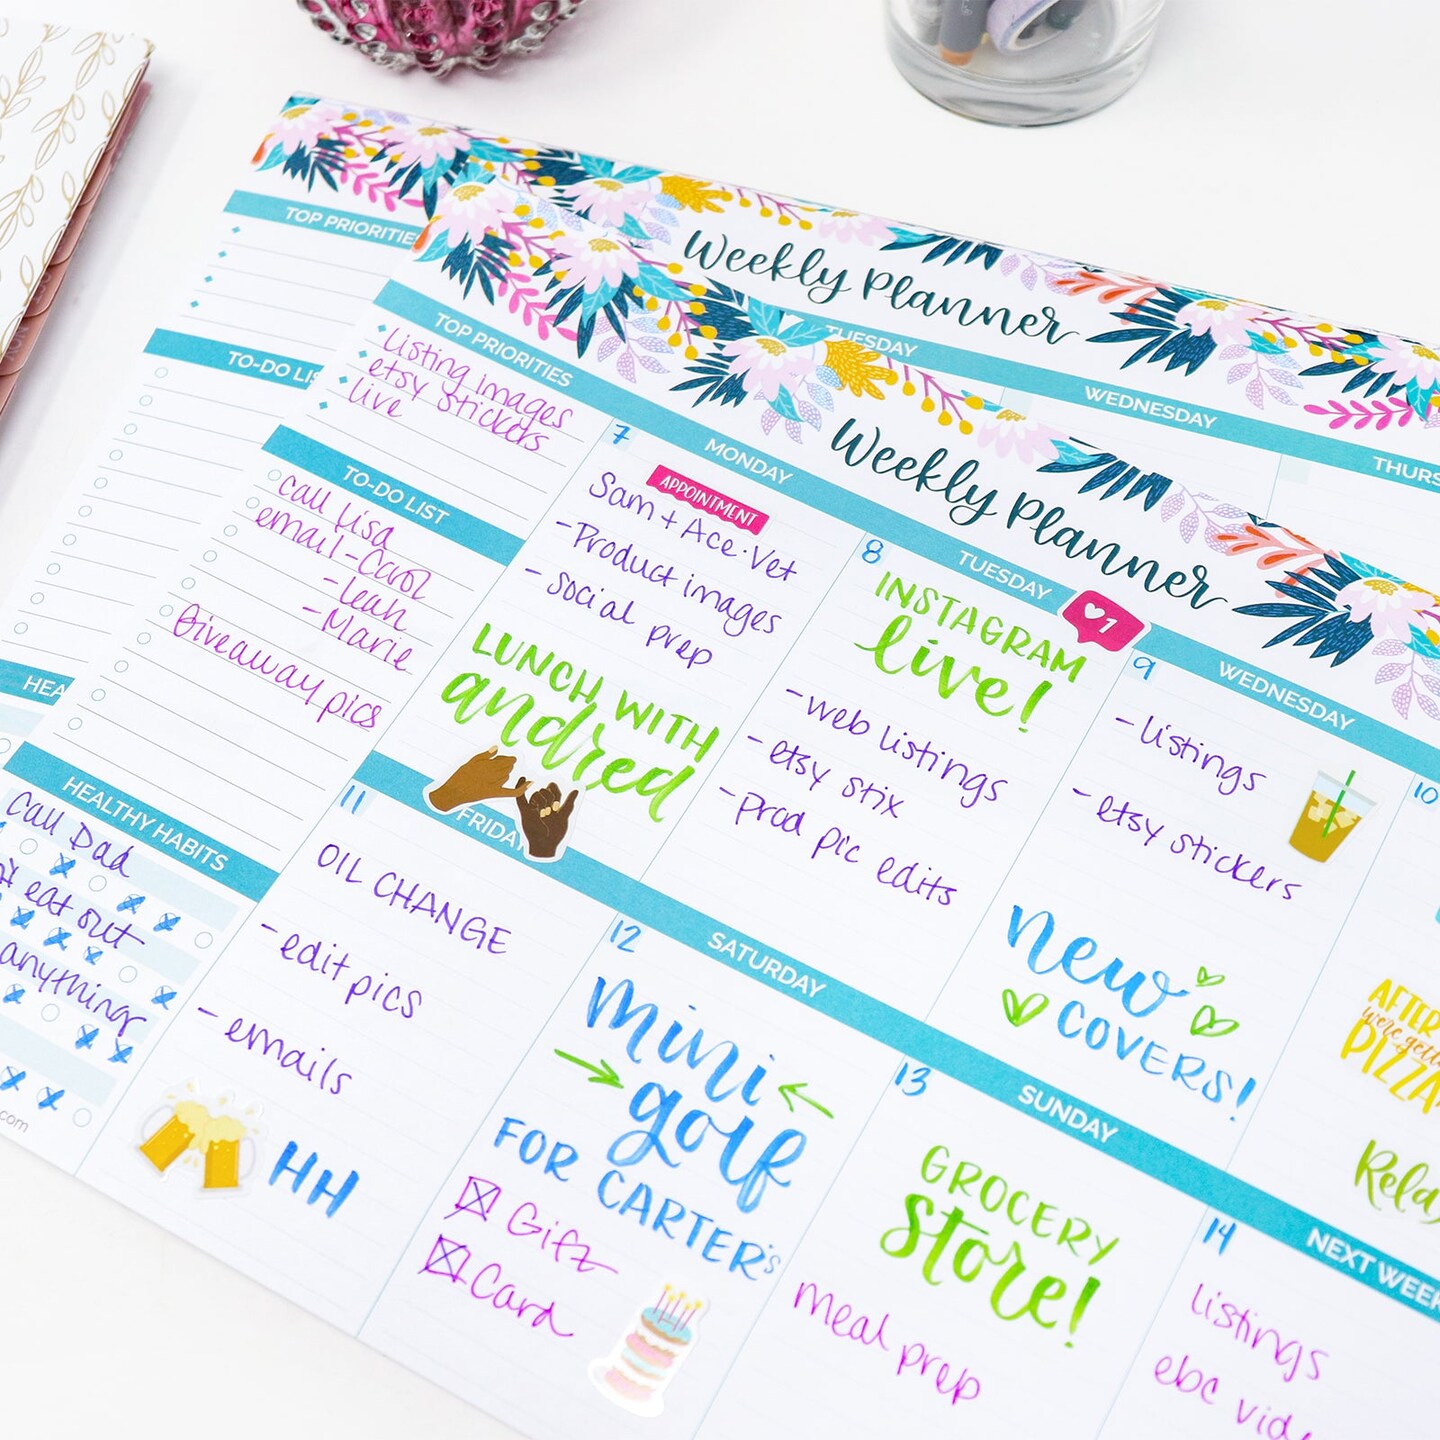 TOP PRIORITIES
TO-DO
HEA
Weekly Planner
TUESDAY
WEDNESDAY
THURS
Weekly Planner
TOP PRIORITIES
Listing images
etsy stickers
live
TO-DO LIST
call Lisa
email - Carol
- Leah
- Marie
Giveaway pics
HEALTHY HABITS
Call Dad
eat out
anything
.com
7
MONDAY
APPOINTMENT
Sam + Ace · Vet
- Product images
- social prep
LUNCH WITH
andred
8
TUESDAY
1
INSTAGRAM
live!
- web listings
- etsy stix
- prod pic edits
9
WEDNESDAY
- listings
- etsy stickers
new
COVERS!
10
AFTER
we're
PIZZA
Rela
11
FRIDAY
OIL CHANGE
- edit pics
- emails
HH
12
SATURDAY
mini
golf
FOR CARTER'S
Gift
Card
13
SUNDAY
GROCERY
Store!
meal prep
14
NEXT WEEK
listings
ebc